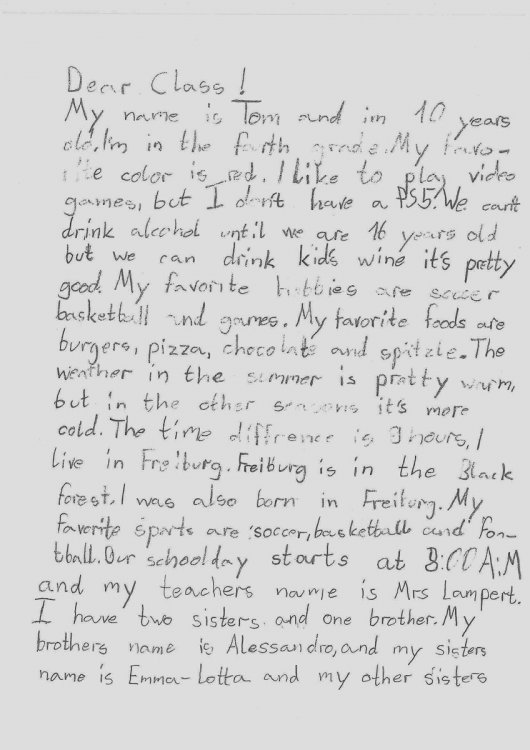 Dear Class!
My name is Tom and im 10 years
old. I'm in the forth grade. My favo-
rite color is red. I like to play video
games, but I don't have a PS5. We can't
drink alcohol until we are 16 years old
but we can drink kid's wine it's pretty
good. My favorite hobbies are soccer
basketball and games. My favorite foods are
burgers, pizza, chocolate and spätzle. The
weather in the summer is pretty warm,
but in the other seasons it's more
cold. The time diffrence is 9 hours, I
live in Freiburg. Freiburg is in the Black
forest. I was also born in Freiburg. My
favorite sports are soccer, basketball and Foo-
tball. Our schoolday starts at 8:00 A:M
and my teachers name is Mrs Lampert.
I have two sisters and one brother. My
brothers name is Alessandro, and my sisters
name is Emma-Lotta and my other sisters